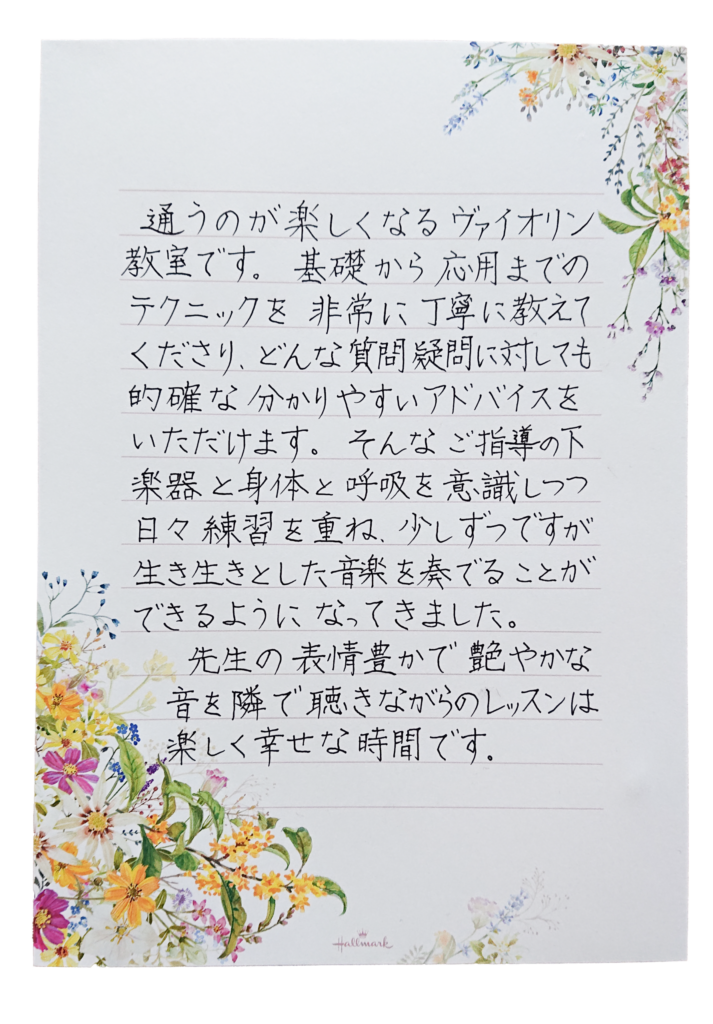 通うのが楽しくなるヴァイオリン
教室です。基礎から応用までの
テクニックを非常に丁寧に教えて
くださり、どんな質問疑問に対しても
的確な分かりやすいアドバイスを
いただけます。そんなご指導の下
楽器と身体と呼吸を意識しつつ
日々練習を重ね、少しずつですが
生き生きとした音楽を奏でることが
できるようになってきました。
先生の表情豊かで艶やかな
音を隣で聴きながらのレッスンは
楽しく幸せな時間です。
Hallmark